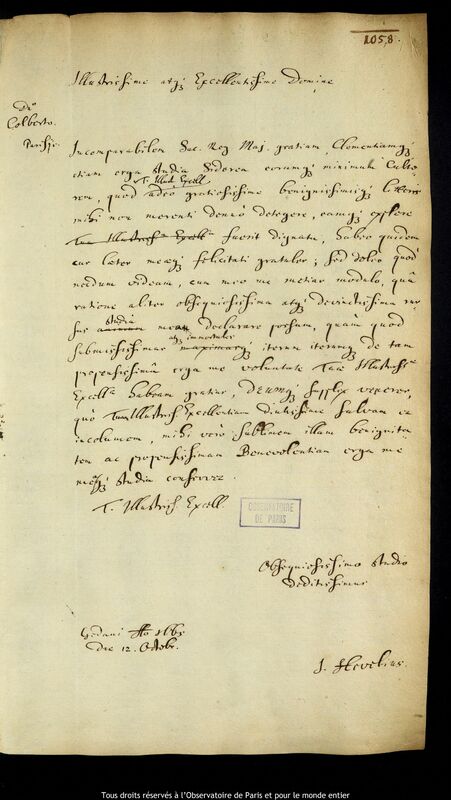 1058.
Illustrissime atq; Excellentissime Domine
Dno
Colberto.
Parisijs.
Incomparabilem Sac. Reg. Maj. gratiam, Clementiamq;
etiam erga studia Siderea eorumq; minimum Culto-
T. Illust. Excell.
rem, quod adeò gratiosissime benignissimeq; literis
mihi non merenti denuò detegere, eamq; offerre
Tua Illustriss. Excell. fuerit dignata, habeo quidem
cur laeter meaeq; felicitati gratuler; sed doleo quod
nondum videam, cum meo me metiar modulo, quâ
ratione aliter obsequiosissima atq; devinctissima rur-
studia
sus mea declarare possum, quàm quod
atq; immortales
submississimas maximasq; iterum iterumq; de tam
propensissimâ erga me voluntate Tuae Illustriss.
Excell. habeam gratias, DEUMq; supplex venerer,
quò Tuam Illustriss. Excellentiam diutissime salvam et
incolumem, mihi verò sublimem illam benignita-
tem ac propensissimam Benevolentiam erga me
meaq; studia conservet.
T. Illustriss. Excell.
OBSERVATOIRE
DE PARIS
Obsequiosissimo studio
deditissimus
Gedani Ao 1665
die 12. Octobr.
J. Hevelius.
Tous droits réservés à l'Observatoire de Paris et pour le monde entier